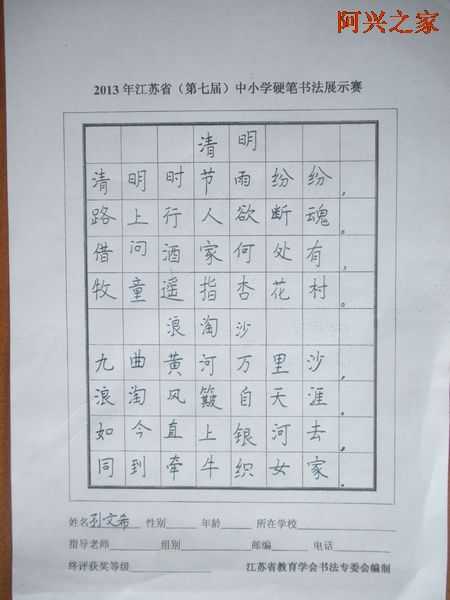 阿兴之家
2013年江苏省（第七届）中小学硬笔书法展示赛
清明
清明时节雨纷纷，
路上行人欲断魂。
借问酒家何处有，
牧童遥指杏花村。
浪淘沙
九曲黄河万里沙，
浪淘风簸自天涯。
如今直上银河去，
同到牵牛织女家。
姓名 孙文希 性别 年龄 所在学校
指导老师 组别 邮编 电话
终评获奖等级 江苏省教育学会书法专委会编制